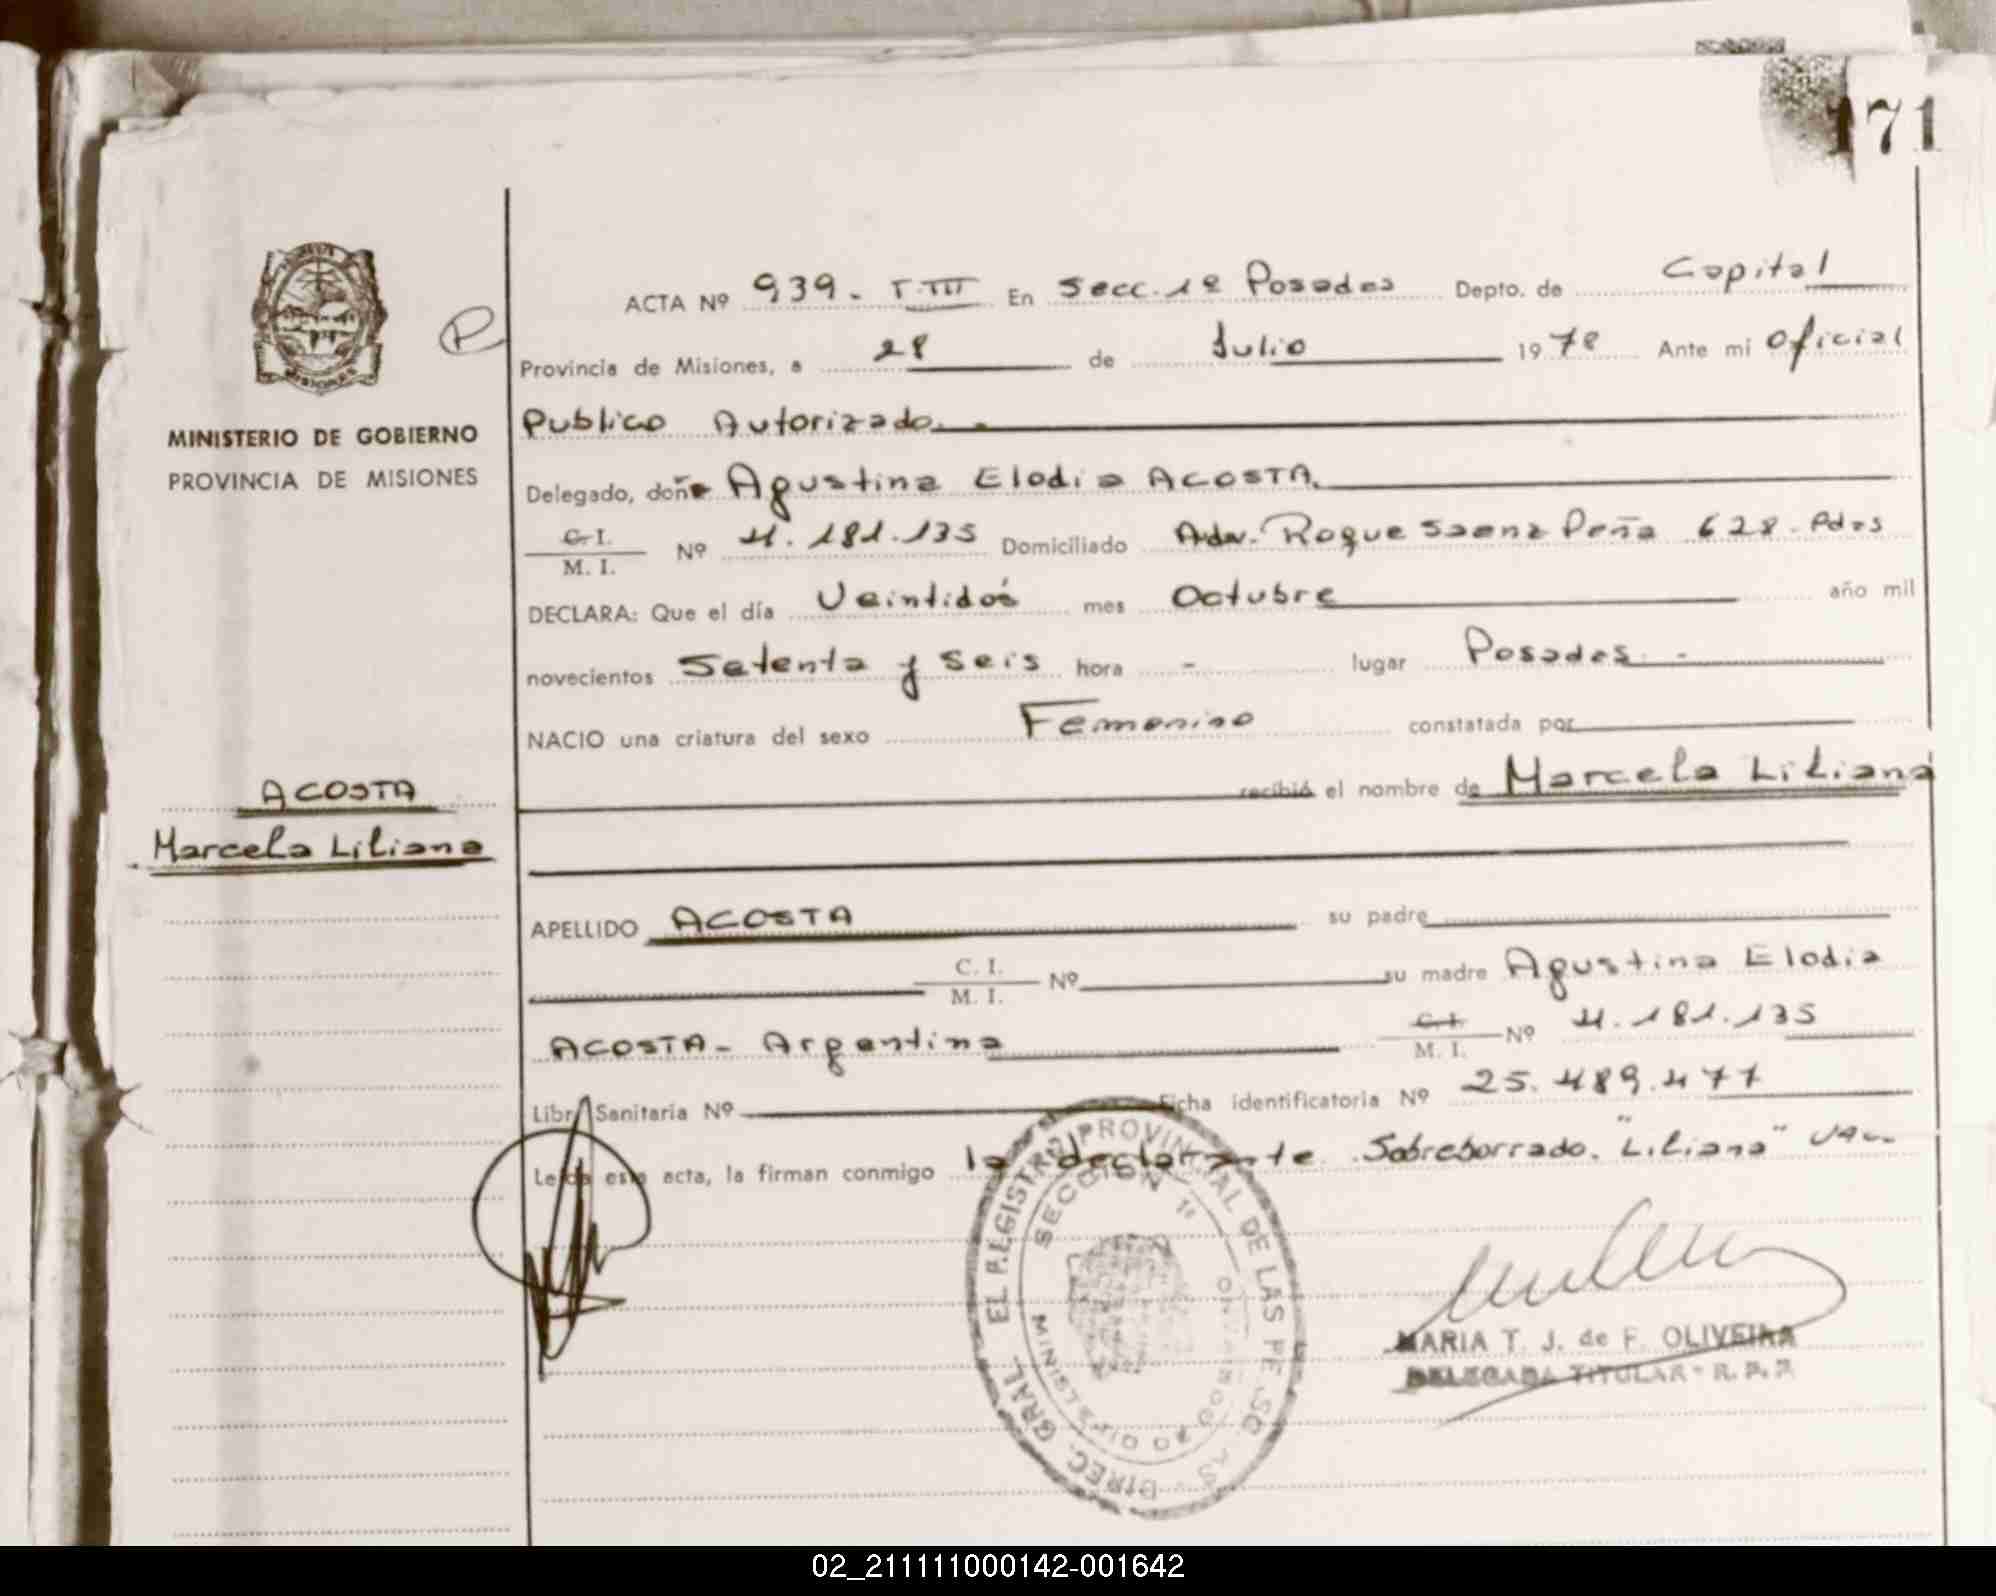 171
ACTA Nº 939. T.III En Secc. 1ª Posadas Depto. de Capital
Provincia de Misiones, a 28 de Julio 1978 Ante mi Oficial
Publico Autorizado.
MINISTERIO DE GOBIERNO
PROVINCIA DE MISIONES
Delegado, doña Agustina Elodia ACOSTA.
C. I.
M. I.
Nº 4.181.135 Domiciliado Avda. Roque Saenz Peña 628. Pdas
DECLARA: Que el día Veintidós mes Octubre año mil
novecientos Setenta y Seis hora - lugar Posadas. -
NACIO una criatura del sexo Femenino constatada por
recibió el nombre de Marcela Liliana
ACOSTA
Marcela Liliana
APELLIDO ACOSTA su padre
C. I.
M. I.
Nº su madre Agustina Elodia
ACOSTA - Argentina
C. I.
M. I.
Nº 4.181.135
Libr. Sanitaria Nº Ficha identificatoria Nº 25.489.477
Leida este acta, la firman conmigo la declarante. Sobreborrado. "Liliana" Vale
DIREC. GRAL. EL REGISTRO PROVINCIAL DE LAS PERSONAS
SECCION 1ª
MINISTERIO DE GOBIERNO
MARIA T. J. de F. OLIVEIRA
DELEGADA TITULAR - R. P. P.
02_211111000142-001642